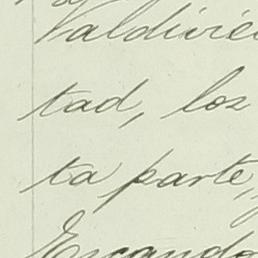 Valdivie
tad, los
ta parte,
Escando